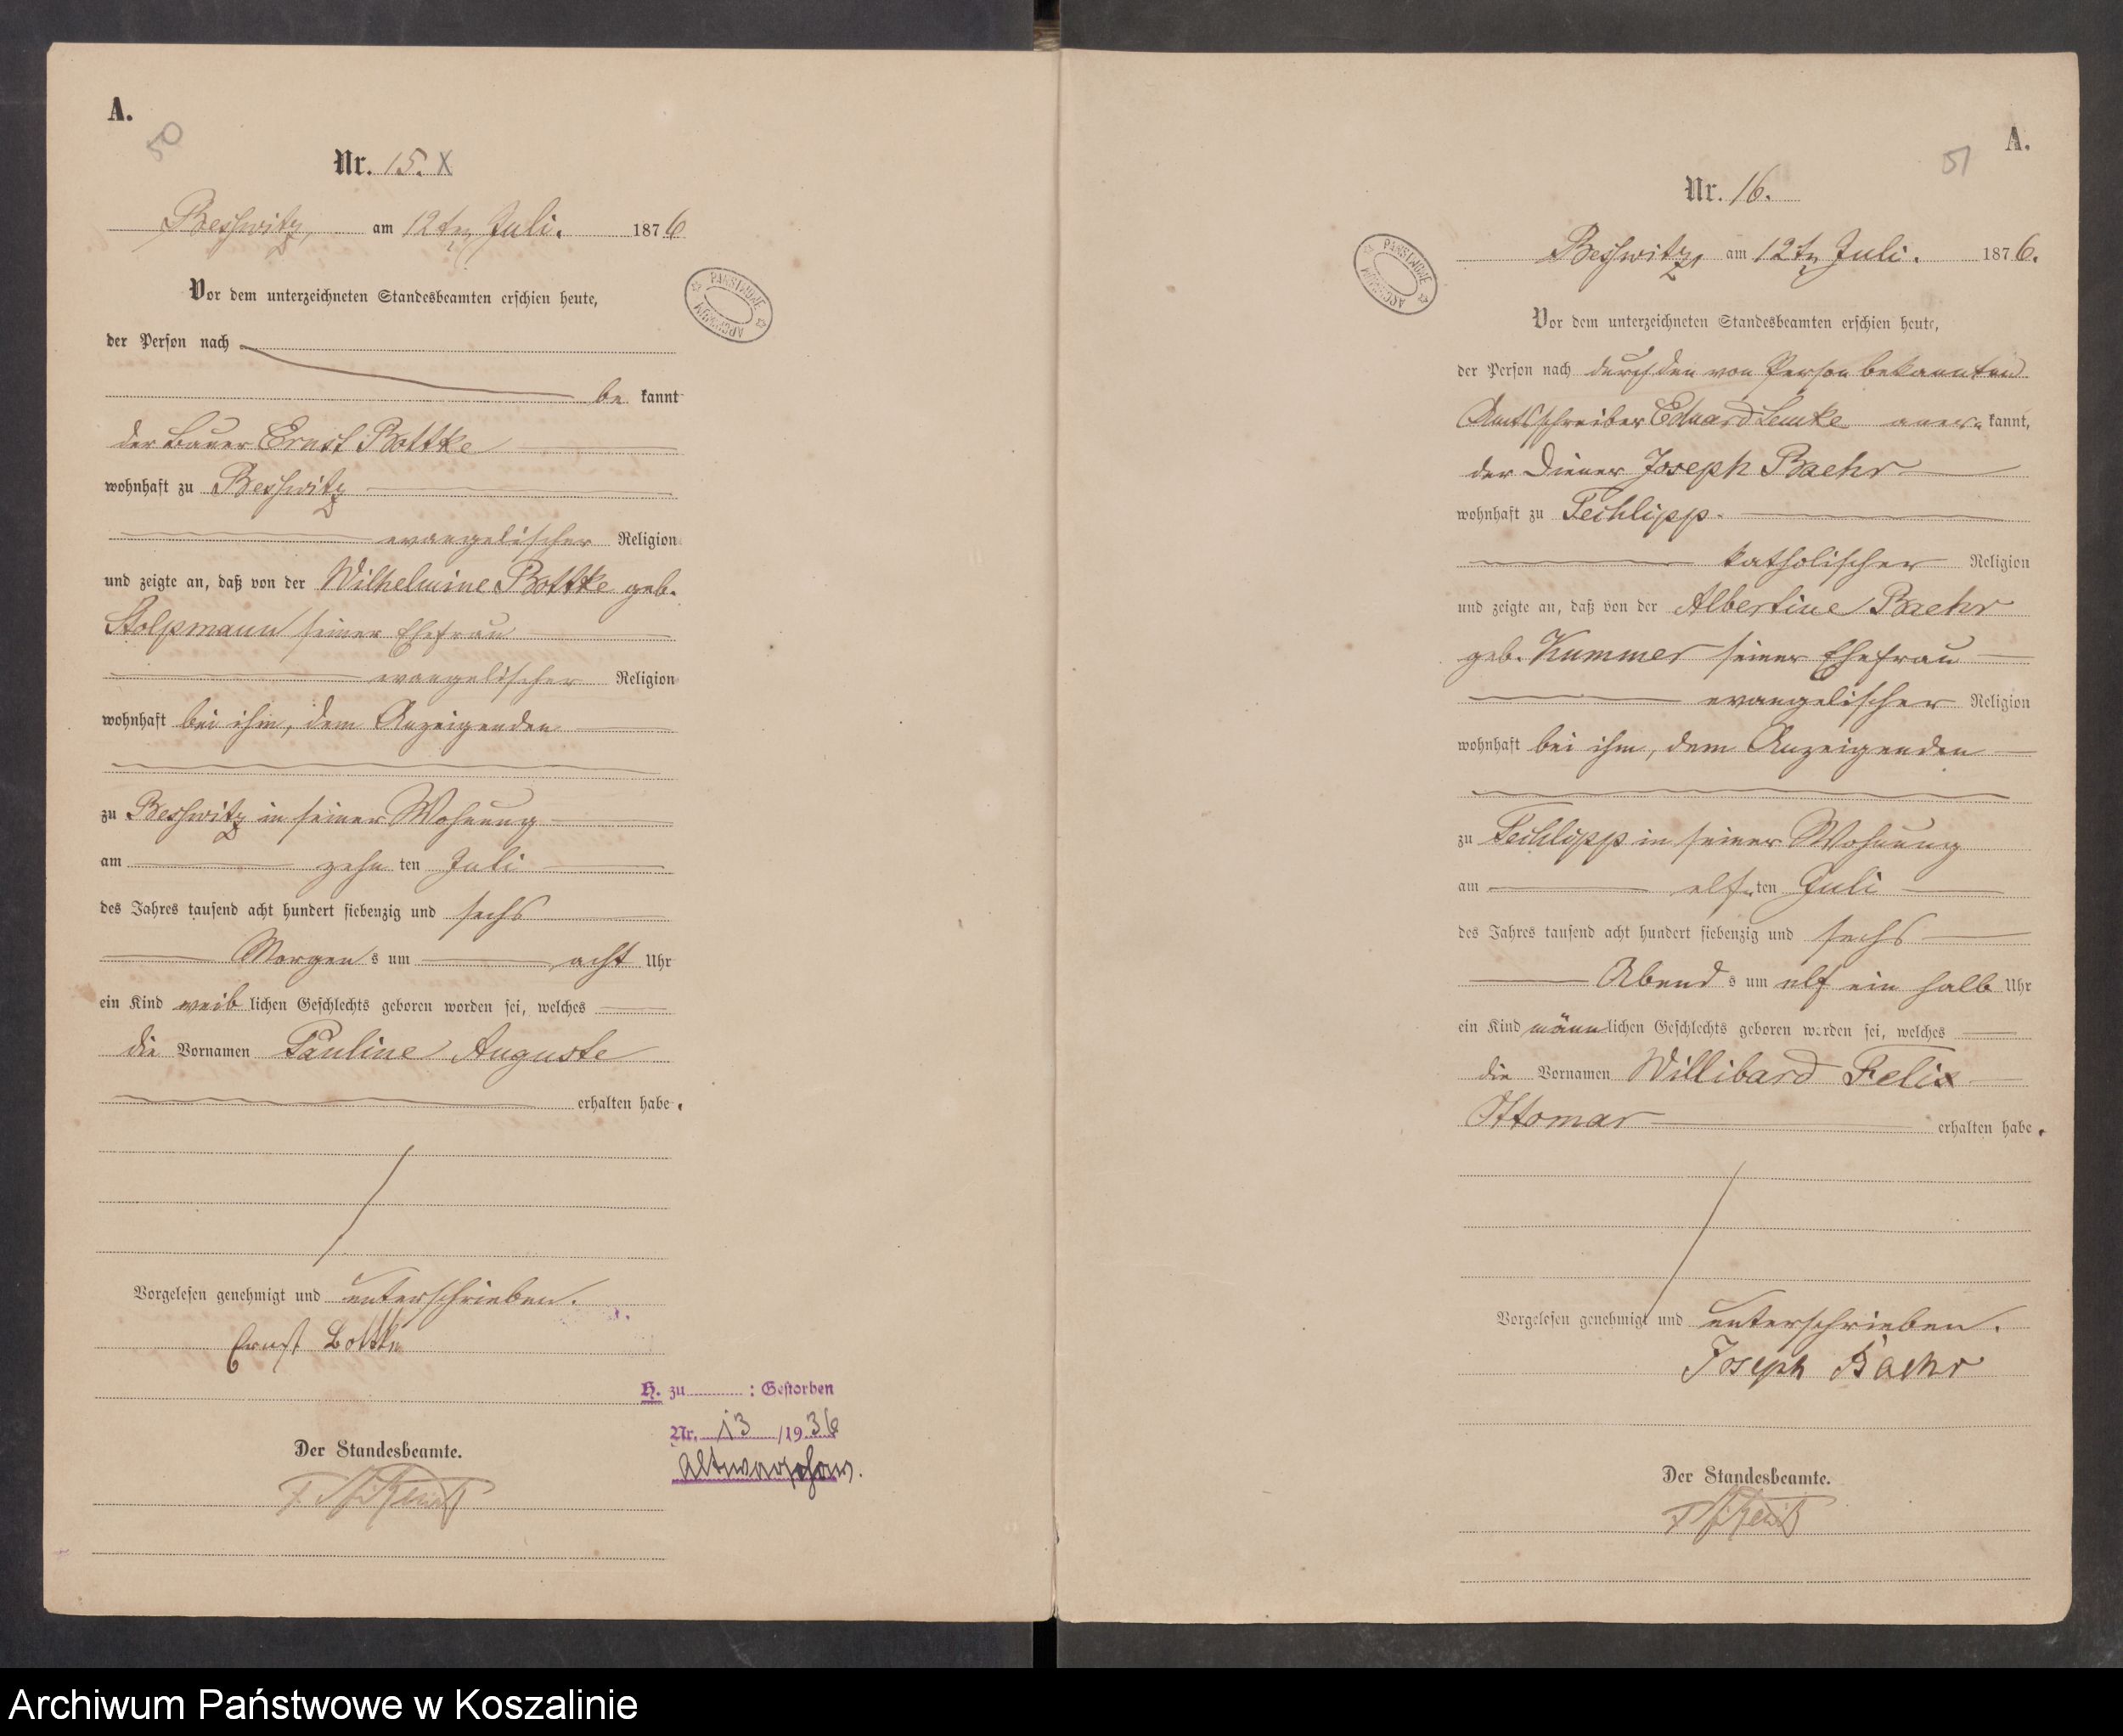 A.
50
Nr. 15. X
Beßwitz, am 12ten Juli. 1876
Vor dem unterzeichneten Standesbeamten erschien heute,
der Person nach
be kannt
der Bauer Ernst Bottke
wohnhaft zu Beßwitz
evangelischer Religion
und zeigte an, daß von der Wilhelmine Bottke geb.
Stolpmann seiner Ehefrau
evangelischer Religion
wohnhaft bei ihm, dem Anzeigenden
zu Beßwitz in seiner Wohnung
am zehn ten Juli
des Jahres tausend acht hundert siebenzig und sechs
Morgen s um acht Uhr
ein Kind weib lichen Geschlechts geboren worden sei, welches
die Vornamen Pauline Auguste
erhalten habe.
Vorgelesen genehmigt und unterschrieben.
Ernst Bottke
H. zu : Gestorben
Nr. 13 /1936
Altwarschow.
Der Standesbeamte.
PAŃSTWOWE ARCHIWUM
A.
51
Nr. 16.
Beßwitz, am 12ten Juli. 1876.
Vor dem unterzeichneten Standesbeamten erschien heute,
der Person nach durch den von Person bekannten
Amtsschreiber Eduard Lemke aner- kannt,
der Diener Joseph Baehr
wohnhaft zu Techlipp.
katholischer Religion
und zeigte an, daß von der Albertine Baehr
geb. Kummer seiner Ehefrau
evangelischer Religion
wohnhaft bei ihm, dem Anzeigenden
zu Techlipp in seiner Wohnung
am elf ten Juli
des Jahres tausend acht hundert siebenzig und sechs
Abend s um elf ein halb Uhr
ein Kind männ lichen Geschlechts geboren worden sei, welches
die Vornamen Willibard Felix
Ottomar erhalten habe.
Vorgelesen genehmigt und unterschrieben.
Joseph Baehr
Der Standesbeamte.
PAŃSTWOWE ARCHIWUM
Archiwum Państwowe w Koszalinie